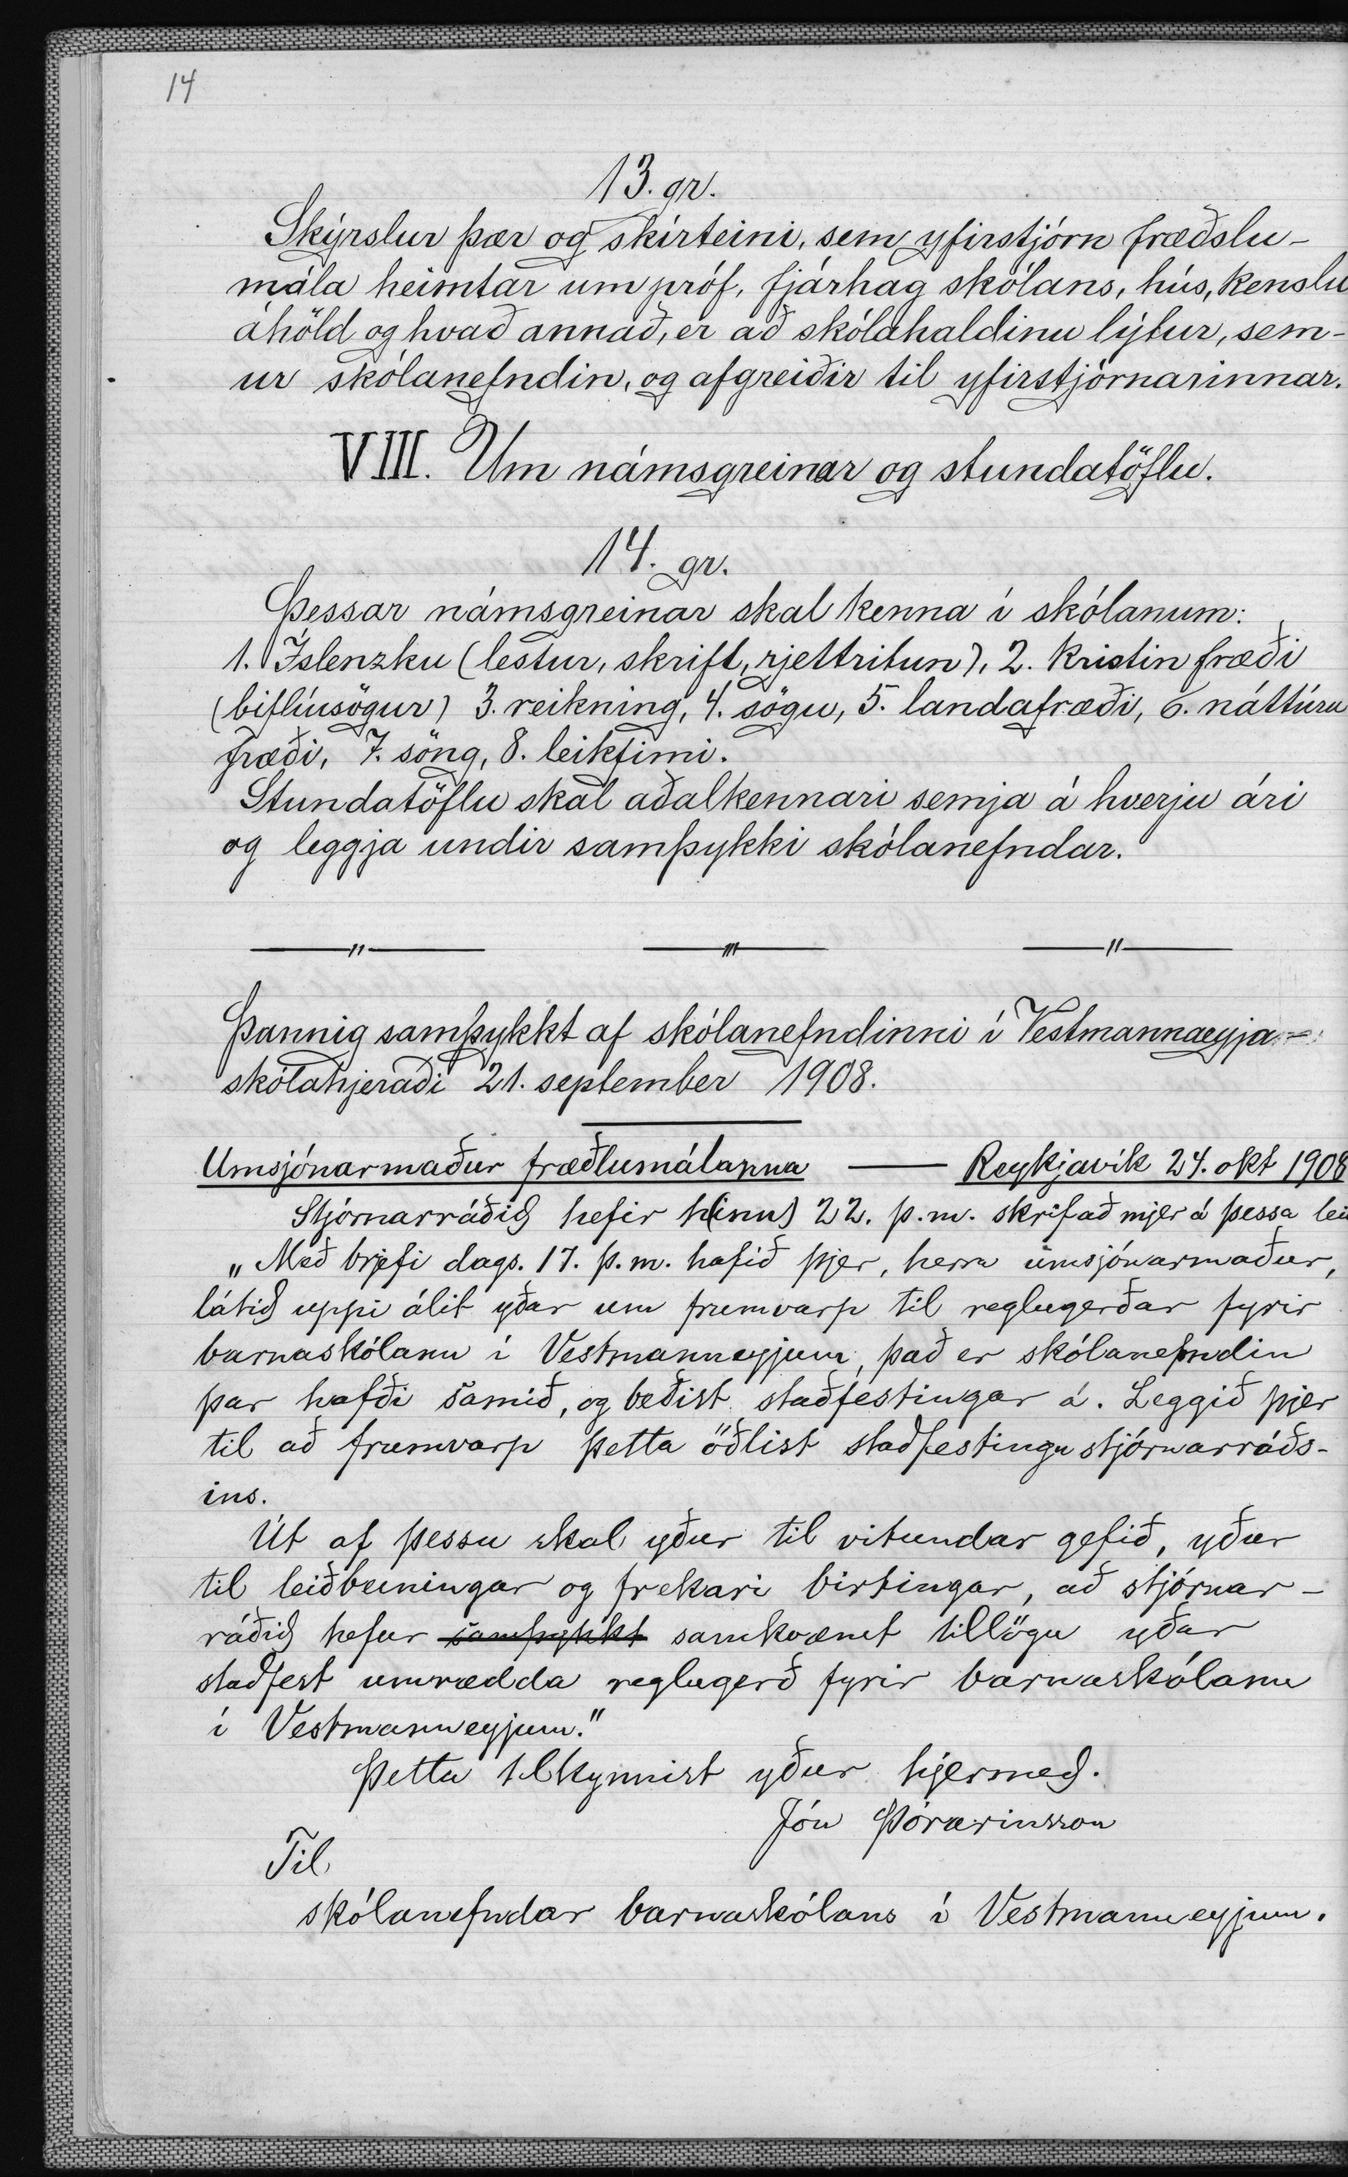 14
13. gr.
Skýrslur þær og skírteini, sem yfirstjórn fræðslu-
mála heimtar um próf, fjárhag skólans, hús, kenslu
áhöld og hvað annað, er að skólahaldinu lýtur, sem-
ur skólanefndin, og afgreiðir til yfirstjórnarinnar.
VIII. Um námsgreinar og stundatöflu.
14. gr.
Þessar námsgreinar skal kenna í skólanum:
1. Íslenzku (lestur, skrift, rjettritun), 2. kristin fræði
(biflíusögur) 3. reikning, 4. sögu, 5. landafræði, 6. náttúru
fræði, 7. söng, 8. leikfimi.
Stundatöflu skal aðalkennari semja á hverju ári
og leggja undir samþykki skólanefndar.
Þannig samþykkt af skólanefndinni í Vestmannaeyja-
skólahjeraði 21. september 1908.
Umsjónarmaður fræðlumálanna — Reykjavík 24. okt 1908
Stjórnarráðið hefir h(inn) 22. þ.m. skrifað mjer á þessa lei
„Með brjefi dags. 17. þ.m. hafið þjer, herra umsjónarmaður,
látið uppi álit yðar um frumvarp til reglugerðar fyrir
barnaskólann í Vestmanneyjum, það er skólanefndin
þar hafði samið, og beðist staðfestingar á. Leggið þjer
til að frumvarp þetta öðlist staðfestingu stjórnarráðs-
ins.
Út af þessu skal yður til vitundar gefið, yður
til leiðbeiningar og frekari birtingar, að stjórnar-
ráðið hefur samþykkt samkvæmt tillögu yðar
staðfest umrædda reglugerð fyrir barnaskólann
í Vestmanneyjum."
Þetta tilkynnist yður hjermeð.
Jón Þórarinsson
Til
skólanefndar barnaskólans í Vestmanneyjum.